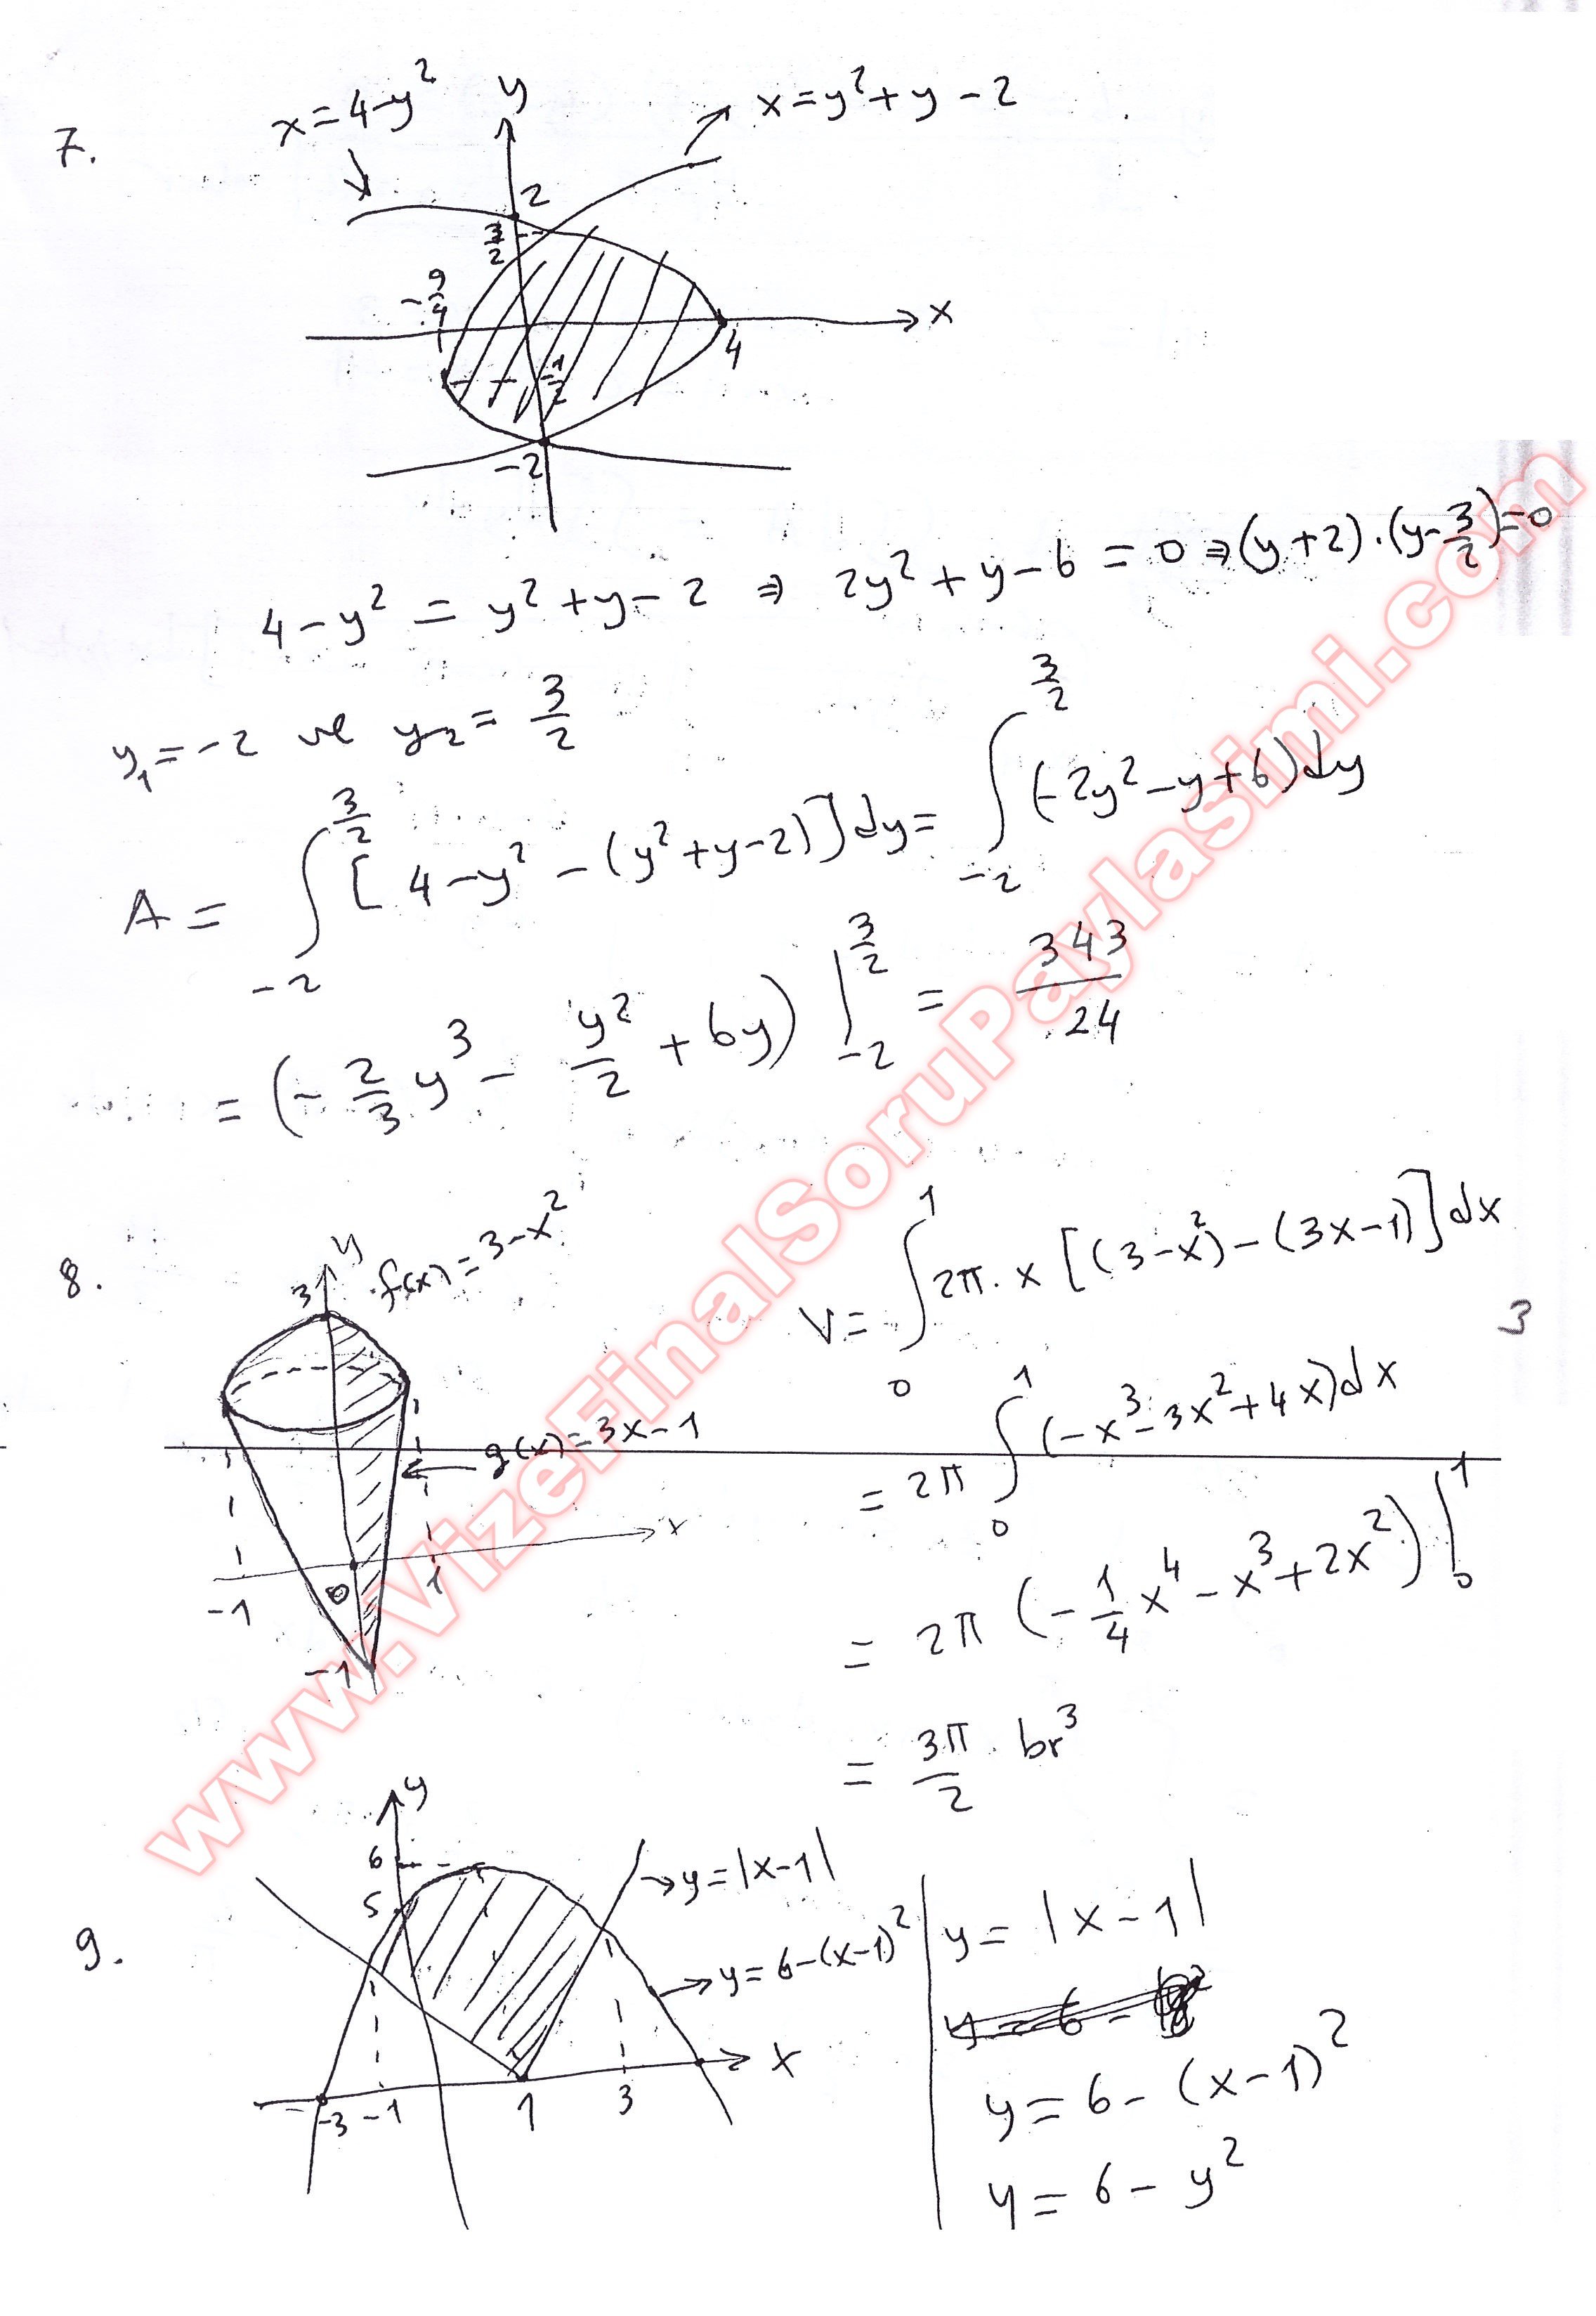 7.
x=4-y²
y
x=y²+y-2
2
3/2
-9/4
x
4
-1/2
-2
4-y² = y²+y-2 ⇒ 2y²+y-6=0 ⇒ (y+2).(y-3/2)=0
y₁=-2 ve y₂=3/2
A = ∫_{-2}^{3/2} [4-y²-(y²+y-2)]dy = ∫_{-2}^{3/2} (-2y²-y+6)dy
= (-2/3 y³ - y²/2 + 6y) |_{-2}^{3/2} = 343/24
8.
y
3
f(x)=3-x²
g(x)=3x-1
x
-1
0
1
-1
V= ∫_0^1 2π.x [(3-x²)-(3x-1)]dx
3
= 2π ∫_0^1 (-x³-3x²+4x)dx
= 2π (-1/4 x⁴ - x³ + 2x²) |_0^1
= 3π/2 br³
9.
y
6
5
y=|x-1|
y=6-(x-1)²
x
-3
-1
1
3
y=|x-1|
y=6-(x-1)²
y=6-y²
www.VizeFinalSoruPaylasimi.com